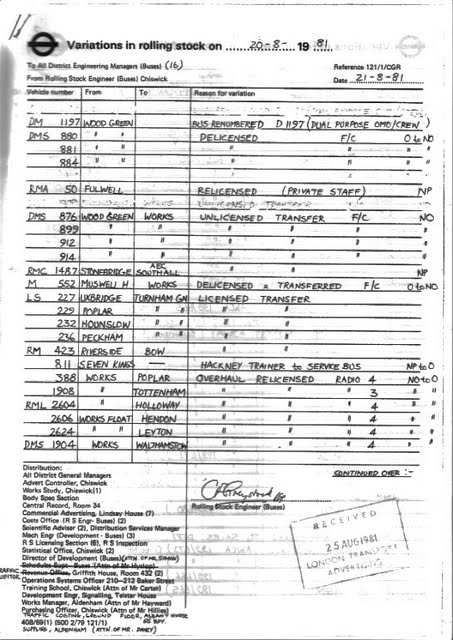 Variations in rolling stock on 20-8- 19 81
To All District Engineering Managers (Buses) (16)
Reference 121/1/CGR
From Rolling Stock Engineer (Buses) Chiswick
Date 21-8-81
Vehicle number From To Reason for variation
DM 1197 WOOD GREEN BUS RENUMBERED D1197 (DUAL PURPOSE OMO/CREW)
DMS 880 " " DELICENSED F/C O to NO
881 " " " " "
884 " " " " "
RMA 50 FULWELL RELICENSED (PRIVATE STAFF) NP
DMS 876 WOOD GREEN WORKS UNLICENSED TRANSFER F/C NO
899 " " " " " "
912 " " " " " "
914 " " " " " "
RMC 1487 STONEBRIDGE AEC SOUTHALL " " NP
M 552 MUSWELL H WORKS DELICENSED & TRANSFERRED F/C O to NO
LS 227 UXBRIDGE TURNHAM GN LICENSED TRANSFER
229 POPLAR " " " "
232 HOUNSLOW " " " "
236 PECKHAM " " " "
RM 423 RIVERSIDE BOW " "
811 SEVEN KINGS — HACKNEY TRAINER to SERVICE BUS NP to O
388 WORKS POPLAR OVERHAUL RELICENSED RADIO 4 NO to O
1908 " TOTTENHAM " " " 3 "
RML 2604 " HOLLOWAY " " " 4 "
2606 WORKS FLOAT HENDON " " " 4 "
2624 " " LEYTON " " " 4 "
DMS 1904 WORKS WALTHAMSTOW " " " 4 "
CONTINUED OVER :-
Distribution:
All District General Managers
Advert Controller, Chiswick
Works Study, Chiswick(1)
Body Spec Section
Central Record, Room 34
Commercial Advertising, Lindsay House (7)
Costs Office (R S Engr- Buses) (2)
Scientific Adviser (2), Distribution Services Manager
Mech Engr (Development - Buses) (3)
R S Licensing Section (6), R S Inspection
Statistical Office, Chiswick (2)
Director of Development (Buses)
Schedules Supt - Buses (Attn of Mr Hyslop)
Revenue Office, Griffith House, Room 432 (2)
Operations Systems Officer 210-212 Baker Street
Training School, Chiswick (Attn of Mr Carter)
Development Engr, Signalling, Telstar House
Works Manager, Aldenham (Attn of Mr Hayward)
Purchasing Officer, Chiswick (Attn of Mr Hillies)
TRAFFIC COSTING, GROUND FLOOR, ALBANY HOUSE
55 BDY.
408/69(1) (500 2/79 121/1)
SUPPLIES, ALDENHAM (ATTN OF MR. DAVEY)
Rolling Stock Engineer (Buses)
RECEIVED
25 AUG 1981
LONDON TRANSPORT
ADVERTISING